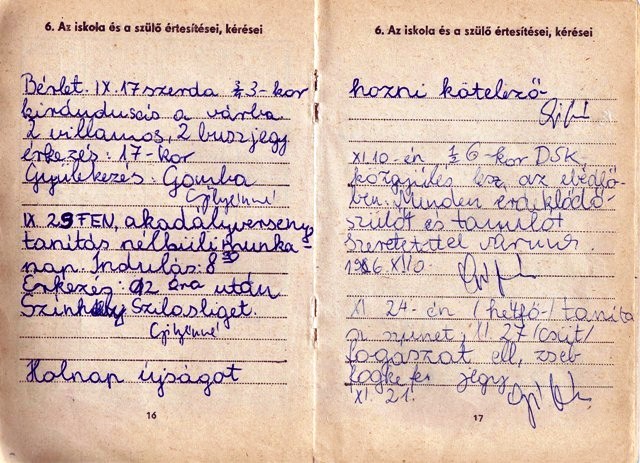 6. Az iskola és a szülő értesítései, kérései
Bérlet. IX. 17 szerda ½3-kor
kirándulás a várba
2 villamos, 2 buszjegy
érkezés: 17-kor
Gyülekezés: Gomba
IX. 29 FEN, akadályverseny
tanítás nélküli munka-
nap. Indulás: 8
Érkezés: 12 óra után
Színhely Szilasliget.
Holnap újságot
16
6. Az iskola és a szülő értesítései, kérései
hozni kötelező
XI. 10-én, ½ 6-kor DSK,
közgyűlés lesz az ebédlő-
ben. Minden érdeklődő
szülőt és tanulót
szeretettel várunk.
1986 XI 10.
XI 24-én /hétfő/ tanítá
si szünet; XI 27 /csüt/
fogászat ell, zseb
fogkefe, jegy
XI. 21.
17